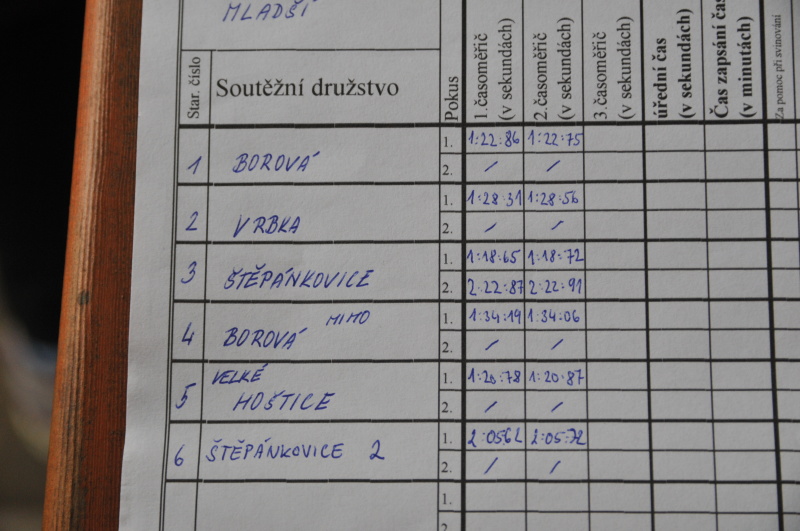 MLADŠÍ
Star. číslo Soutěžní družstvo Pokus 1.časoměřič (v sekundách) 2.časoměřič (v sekundách) 3.časoměřič (v sekundách) úřední čas (v sekundách) Čas zapsání čas (v minutách) Za pomoc při svinování
1 BOROVÁ 1. 1:22:86 1:22:75
2. / /
2 VRBKA 1. 1:28:31 1:28:56
2. / /
3 ŠTĚPÁNKOVICE 1. 1:18:65 1:18:72
2. 2:22:87 2:22:91
4 BOROVÁ MIMO 1. 1:34:19 1:34:06
2. / /
5 VELKÉ HOŠTICE 1. 1:20:78 1:20:87
2. / /
6 ŠTĚPÁNKOVICE 2 1. 2:05:72
2. / /
1.
2.